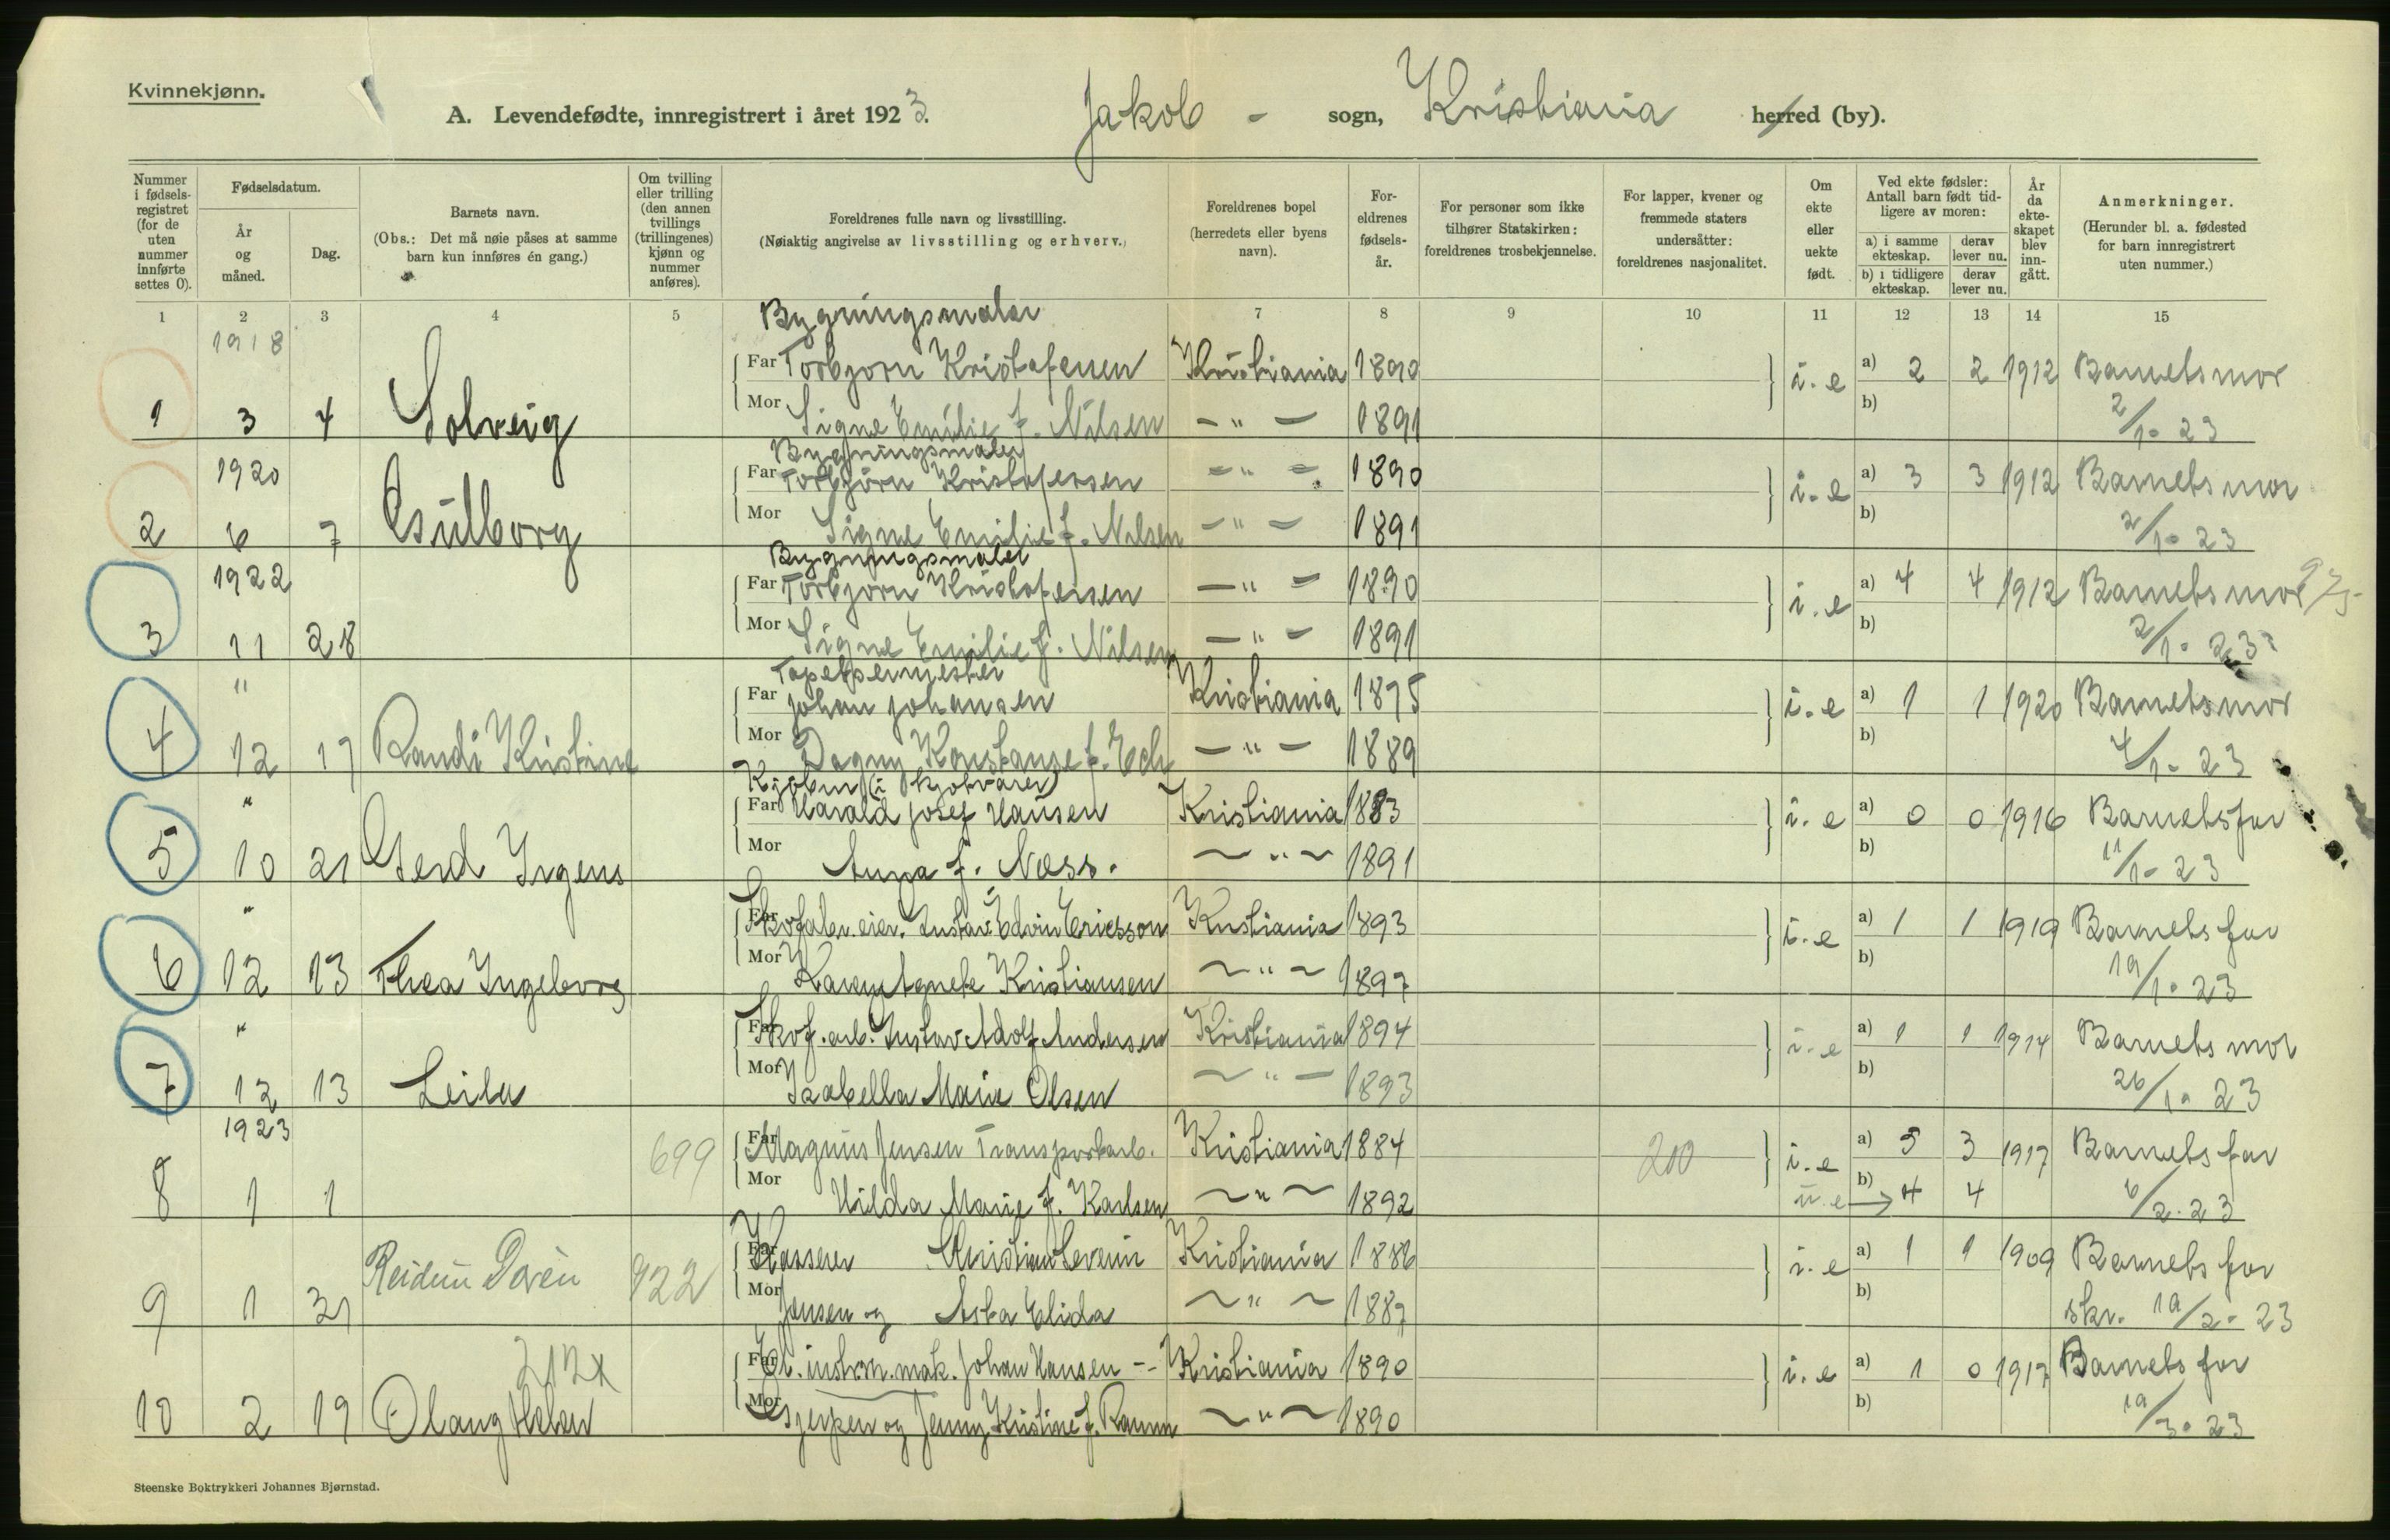 Kvinnekjønn.
A. Levendefødte, innregistrert i året 1923. Jakob - sogn, Kristiania herred (by).
Nummer i fødselsregistret (for de uten nummer innførte settes 0).
Fødselsdatum.
År og måned.
Dag.
Barnets navn.
(Obs.: Det må nøie påses at samme barn kun innføres én gang.)
Om tvilling eller trilling (den annen tvillings (trillingenes) kjønn og nummer anføres).
Foreldrenes fulle navn og livsstilling.
(Nøiaktig angivelse av livsstilling og erhverv.)
Foreldrenes bopel (herredets eller byens navn).
Foreldrenes fødselsår.
For personer som ikke tilhører Statskirken: foreldrenes trosbekjennelse.
For lapper, kvener og fremmede staters undersåtter: foreldrenes nasjonalitet.
Om ekte eller uekte født.
Ved ekte fødsler: Antall barn født tidligere av moren:
a) i samme ekteskap. derav lever nu.
b) i tidligere ekteskap. derav lever nu.
År da ekteskapet blev inngått.
Anmerkninger.
(Herunder bl. a. fødested for barn innregistrert uten nummer.)
1 2 3 4 5 7 8 9 10 11 12 13 14 15
Bygningsmaler
1918 Far Torbjørn Kristofersen Kristiania 1890 i. e a) 2 2 1912 Barnets mor
1 3 4 Solveig Mor Signe Emilie f. Nilsen - " - 1891 b) 2/1- 23
Bygningsmaler
1920 Far Torbjørn Kristofersen - " - 1890 i. e a) 3 3 1912 Barnets mor
2 6 7 Mor Signe Emilie f. Nilsen - " - 1891 b) 2/1- 23
Bygningsmaler
1922 Far Torbjørn Kristofersen - " - 1890 i. e a) 4 4 1912 Barnets mor
3 11 28 Mor Signe Emilie f. Nilsen - " - 1891 b) 2/1- 23
Tapetsermester
" Far Johan Johansen Kristiania 1875 i. e a) 1 1 1920 Barnets mor
4 12 17 Randi Kristine Mor Dagny Konstanse f. Ech - " - 1889 b) 4/1- 23
" Far Harald Josef Hansen Kristiania 1883 i. e a) 0 0 1916 Barnets far
5 10 21 Gerd Irgens Mor Anna f. Næss. - " - 1891 b) 11/1- 23
" Far Skofabr. eier. Gustav Edvin Ericsson Kristiania 1893 i. e a) 1 1 1919 Barnets far
6 12 13 Thea Ingeborg Mor Karen Agnete Kristiansen - " - 1897 b) 19/1- 23
" Far Skof. arb. Gustav Adolf Andersen Kristiania 1894 i. e a) 1 1 1914 Barnets mor
7 12 13 Leila Mor Isabella Marie Olsen - " - 1893 b) 26/1- 23
1923 699 Far Magnus Jensen Transportarb. Kristiania 1884 200 i. e a) 5 3 1917 Barnets far
8 1 1 Mor Hilda Marie f. Karlsen - " - 1892 u. e b) 4 4 6/2. 23
Reidun Doren 922 Far Kasserer Kristian Severin Kristiania 1886 i. e a) 1 1 1909 Barnets far
9 1 31 Mor Jensen og Asta Elida - " - 1887 b) skr. 19/2- 23
212x Far El. instr. mak. Johan Hansen -- Kristiania 1890 i. e a) 1 0 1917 Barnets far
10 2 19 Mor Gjerpen og Jenny Kristine f. Ramm - " - 1890 b) 19/3- 23
Steenske Boktrykkeri Johannes Bjørnstad.